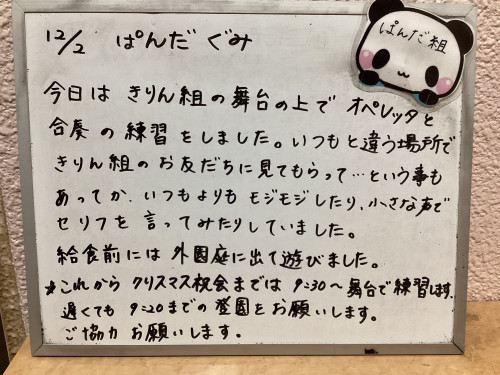 12/2 ぱんだぐみ
ぱんだ組
今日は きりん組の舞台の上で オペレッタと
合奏 の 練習 をしました。いつもと違う場所で
きりん組の お友だちに見てもらって…という事も
あってか、いつもよりも モジモジしたり、小さな声で
セリフを 言ってみたりしていました。
給食前には 外園庭に出て遊びました。
*これから クリスマス祝会までは 9:30～舞台で練習します。
遅くても 9:20までの 登園をお願いします。
ご協力 お願いします。